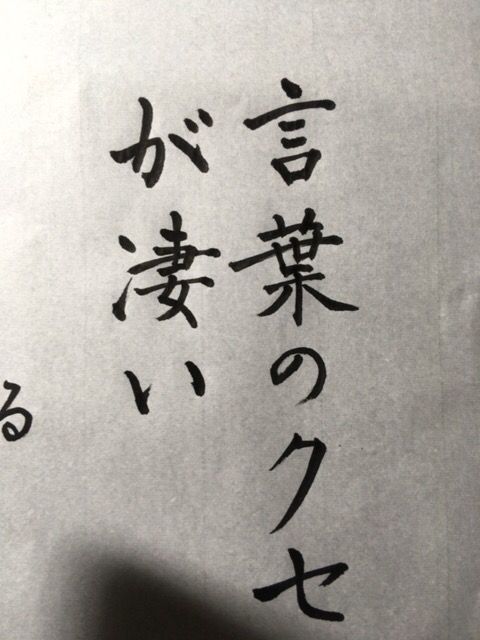 言葉のクセ
が凄い
る